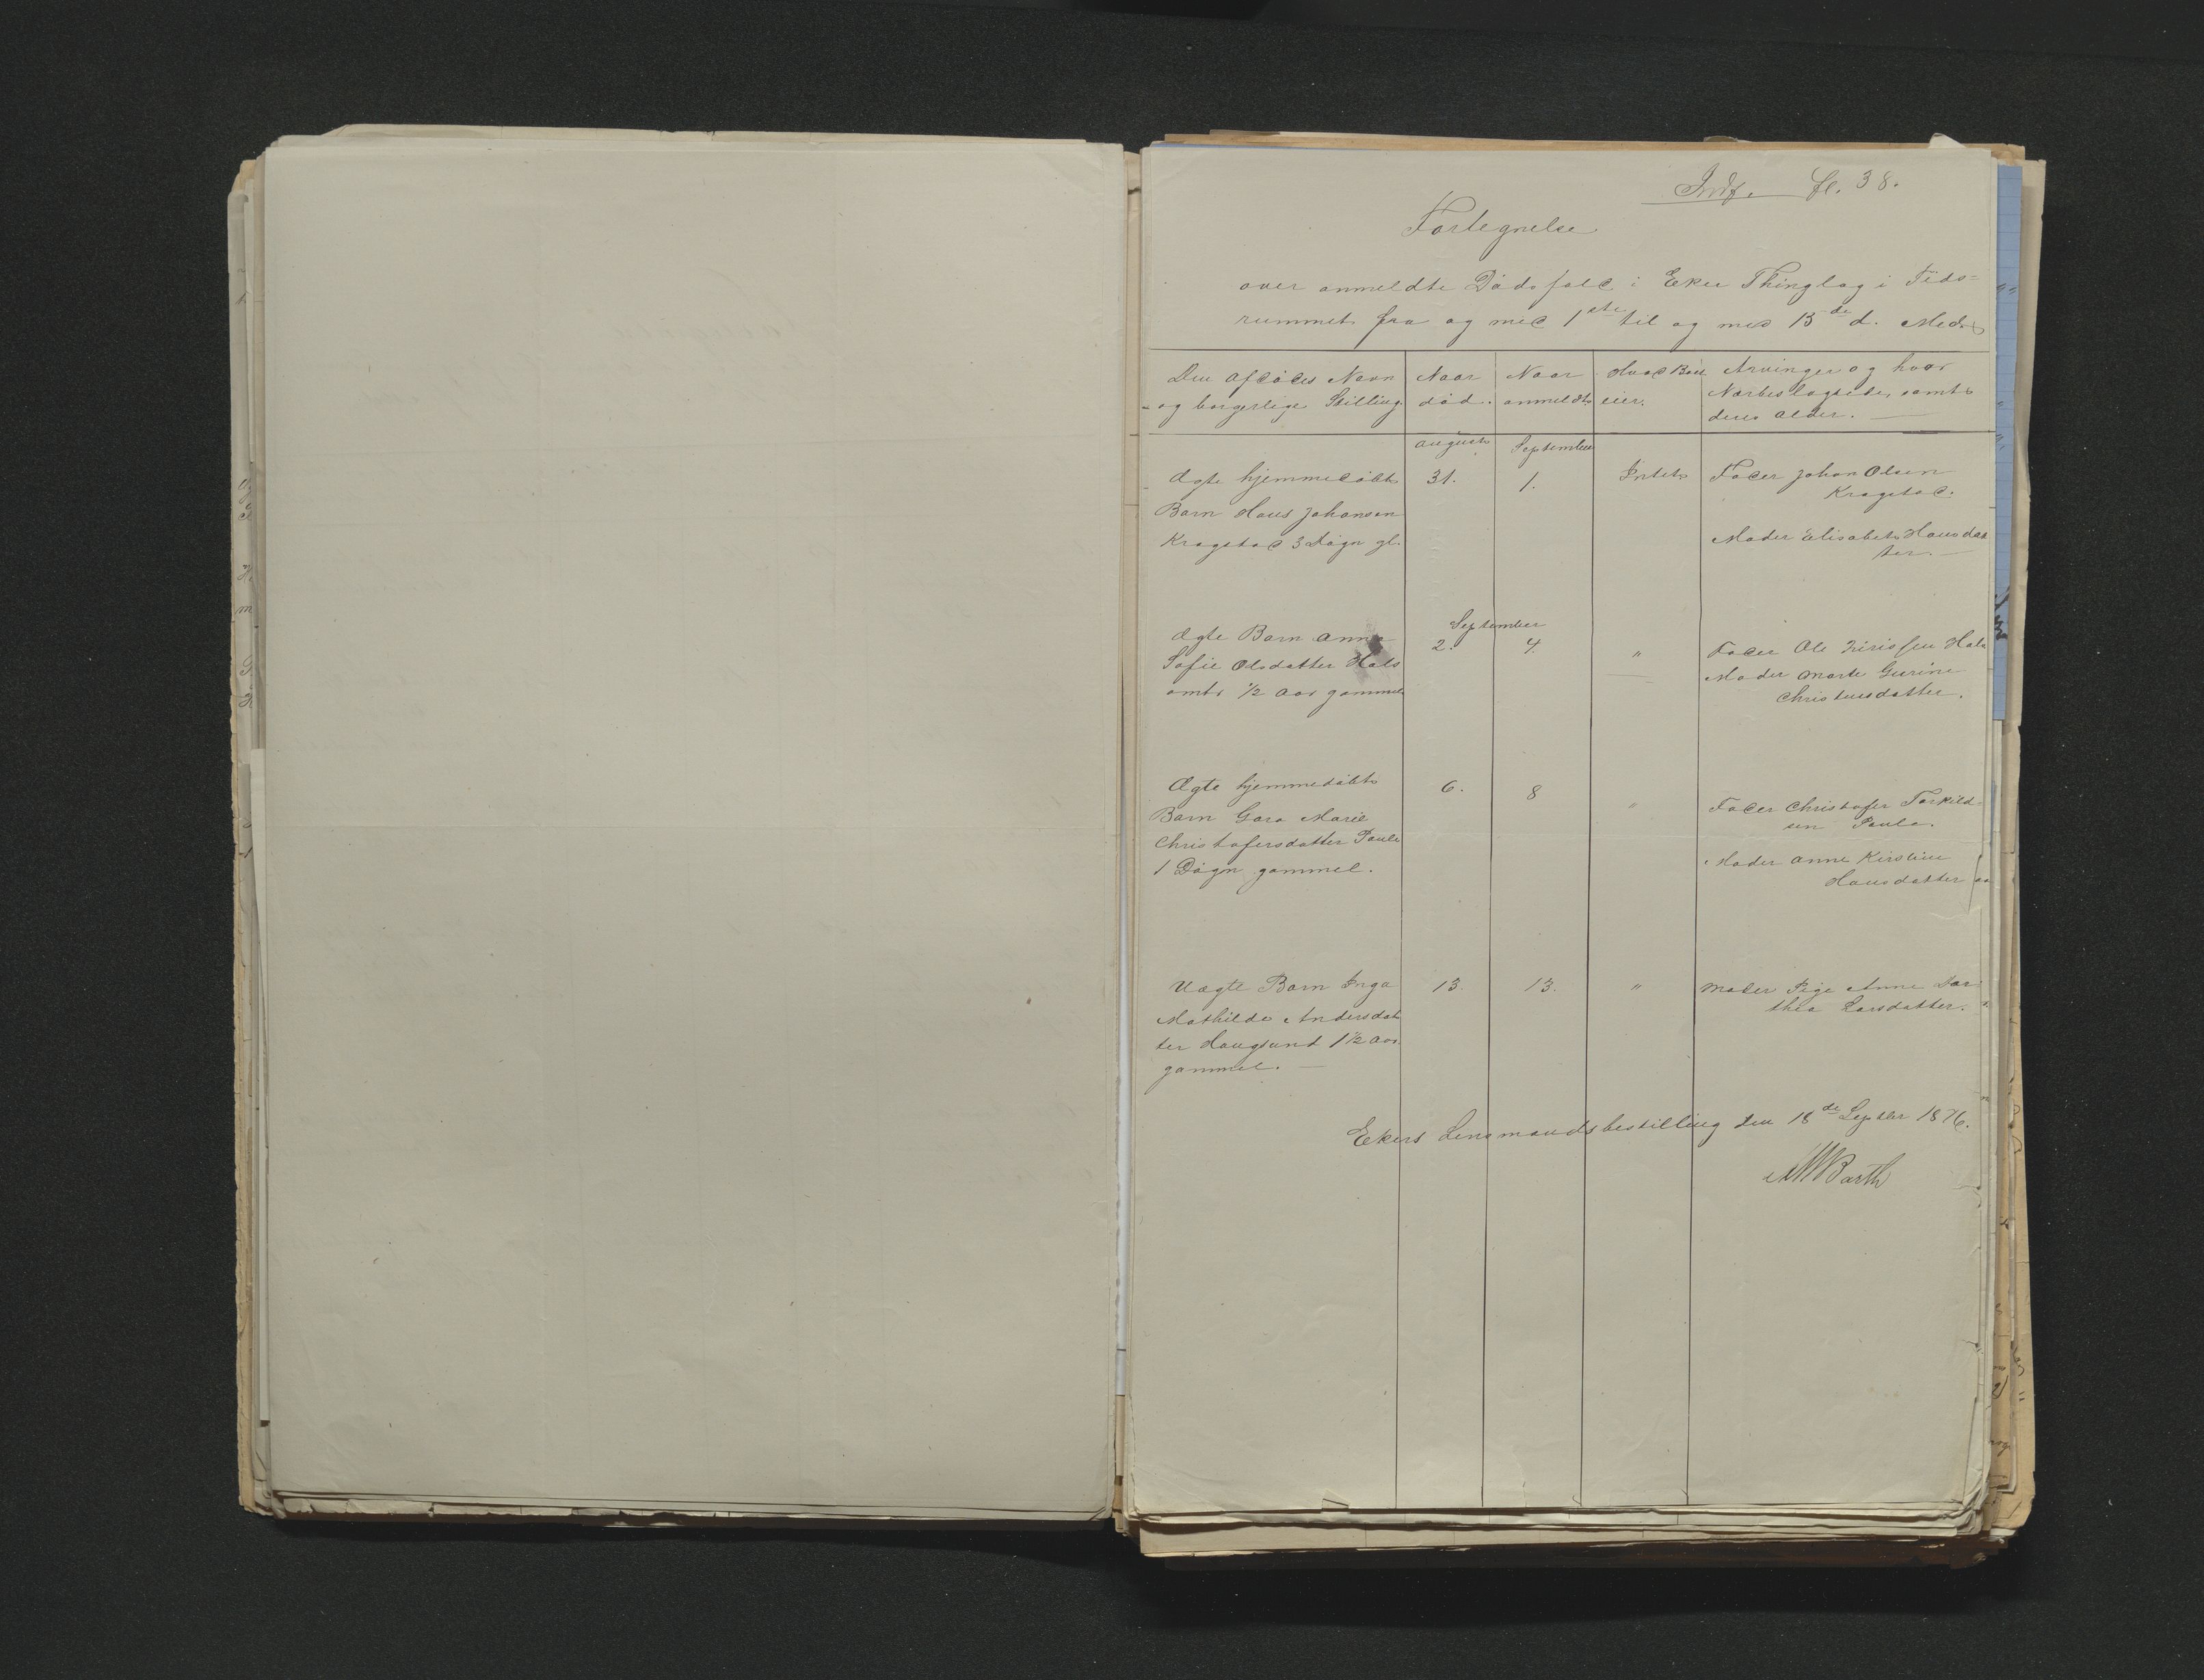 Indf. fl. 38.
Fortegnelse
over anmeldte Dødsfald i Eker Thinglag i Tids-
rummet fra og med 1ste til og med 15de d. Md.
Den afdødes Navn og borgerlige Stilling.
Naar død.
Naar anmeldt
Hvad Boet eier.
Arvinger og hvor Nærbeslægtede, samt deres Alder.
August September
Ægte hjemmedøbt 31. 1. Intet Fader Johan Olsen
Barn Hans Johansen Kragstad.
Kragstad 3 Døgn gl. Moder Elisabet Hansdat
ter.
September
Ægte Barn Anne 2. 4. " Fader Ole Hals
Sofie Olsdatter Hals Moder Marte Gurine
omtr ½ Aar gammel Christensdatter.
Ægte hjemmedøbt 6. 8 " Fader Christofer Torkild-
Barn Gara Marie sen Paule.
Christofersdatter Paule Moder Anne Kirstine
1 Døgn gammel. Hansdatter
Uægte Barn Inga 13. 13. " Moder Pige Anne Dor
Mathilde Andersdat thea Larsdatter.
ter Haugsund 1½ Aar
gammel.
Ekers Lensmandsbestilling den 18de Septbr 1876.
Barth